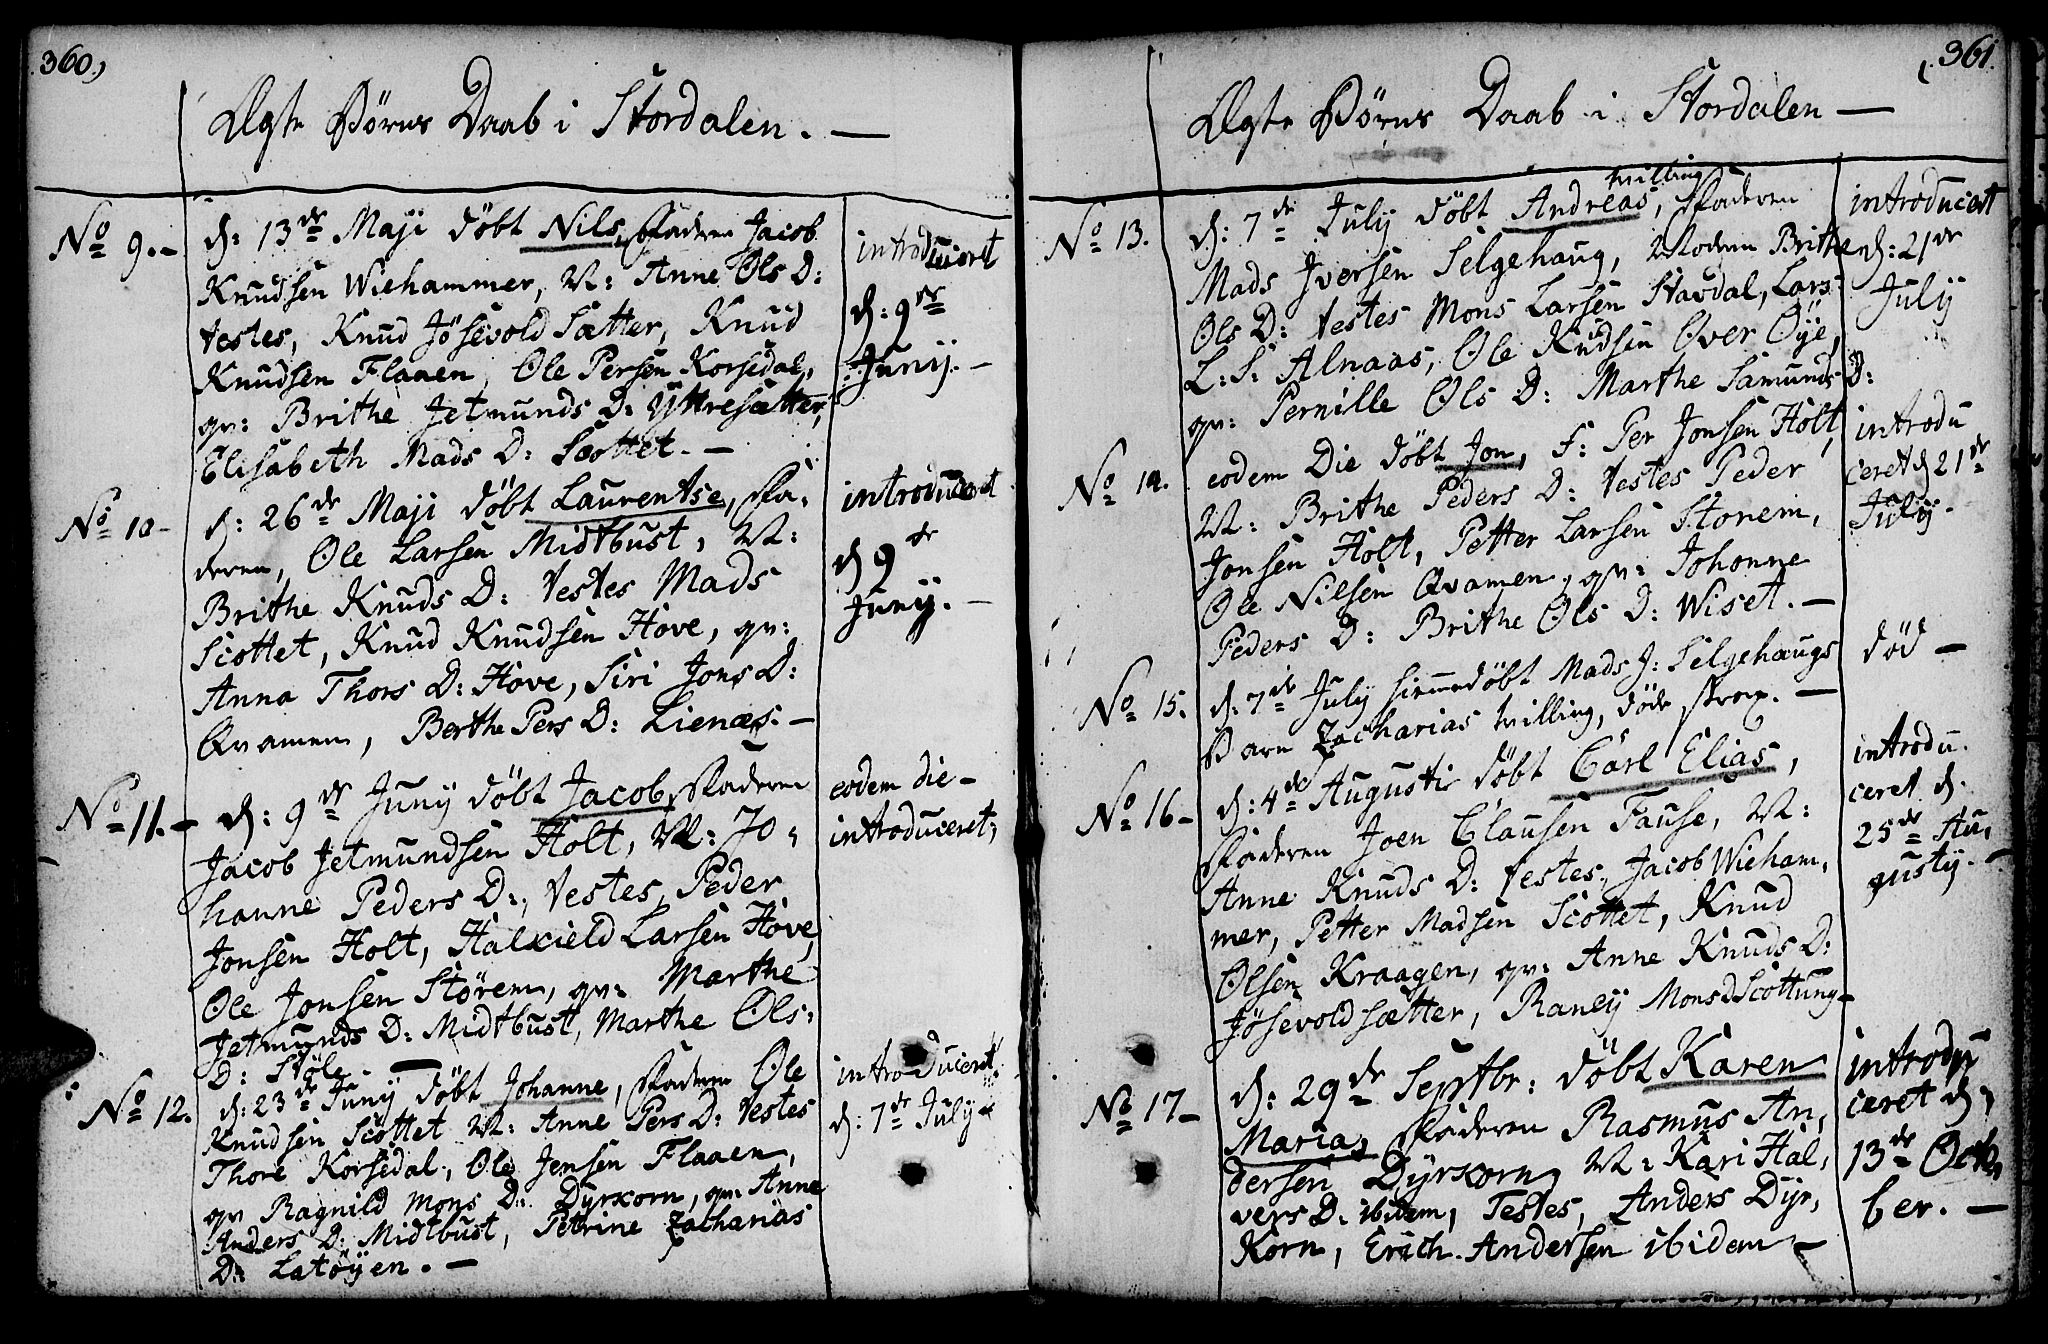 360,
Ægte Børns Daab i Stordalen. —
No 9. - d: 13de Maji döbt Nils, Faderen Jacob
Knudsen Wiehammer, M: Anne Ols D:
testes, Knud Jösevold Sætter, Knud
Knudsen Flaaen, Ole Persen Korsedal,
qv: Brithe Jetmunds D: Yttresætter,
Elisabeth Mads D: Scottet. —
introduceret
d: 9de
Juny. -
No 10 - d: 26de Maji döbt Laurentse, Fa-
deren, Ole Larsen Midtbust, M:
Brithe Knuds D: testes Mads
Scottet, Knud Knudsen Hove, qv:
Anna Thors D: Hove, Siri Jons D:
Qvamen, Berthe Pers D: Lienæs. —
introduceret
d 9de
Juny. -
No 11. - d: 9de Juny döbt Jacob, Faderen
Jacob Jetmundsen Holt, M: Jo-
hanne Peders D:, testes, Peder
Jonsen Holt, Halkield Larsen Hove,
Ole Jonsen Störem, qv: Marthe
Jetmunds D: Midtbust, Marthe Ols-
D: Störe. —
eodem die -
introduceret,
No 12. d: 23de Juny döbt Johanne, Faderen Ole
Knudsen Scottet M: Anne Pers D: testes
Thore Korsedal, Ole Jensen Flaaen,
qv Ragnild Mons D: Dyrkorn, qv: Anne
Anders D: Midtbust, Petrine Zacharias
D: Latöyen. —
introduceret
d: 7de July
361.
Ægte Børns Daab i Stordalen —
tvilling
No 13. d: 7de July döbt Andreas, Faderen
Mads Jversen Selgehaug, Moderen Brithe
Ols D: testes Mons Larsen Stavdal, Lars
L: S: Alnaas, Ole Knudsen Over Öye,
qv: Pernille Ols D: Marthe Samunds D:
introducert
d: 21de
July
No 14. eodem Die döbt Jon, F: Per Jonsen Holt,
M: Brithe Peders D: testes Peder
Jonsen Holt, Petter Larsen Storem,
Ole Nilsen Qvamen, qv: Johonne
Peders D: Brithe Ols D: Wiset. —
introdu
ceret d 21de
July.
No 15. d: 7de July hiemmedöbt Mads J: Selgehaugs
Barn Zacharias tvilling, döde strax. —
död —
No 16 - d: 4de Augusti döbt Carl Elias,
Faderen Joen Clausen Fause, M:
Anne Knuds D: testes, Jacob Wieham,
mer, Petter Madsen Scottet, Knud
Olsen Kraagen, qv: Anne Knuds D:
Jösevoldsætter, Raney Mons d Scottung -
introdu.
ceret d.
25de Au,
gusty. -
No 17 - d: 29de Septbr: döbt Karen
Maria, Faderen Rasmus An,
dersen Dyrkorn, M: Kari Hal,
vers D. ibidem, Testes, Anders Dyr,
korn, Erich Andersen ibidem -
introdu
ceret d,
13de Octo,
ber. —